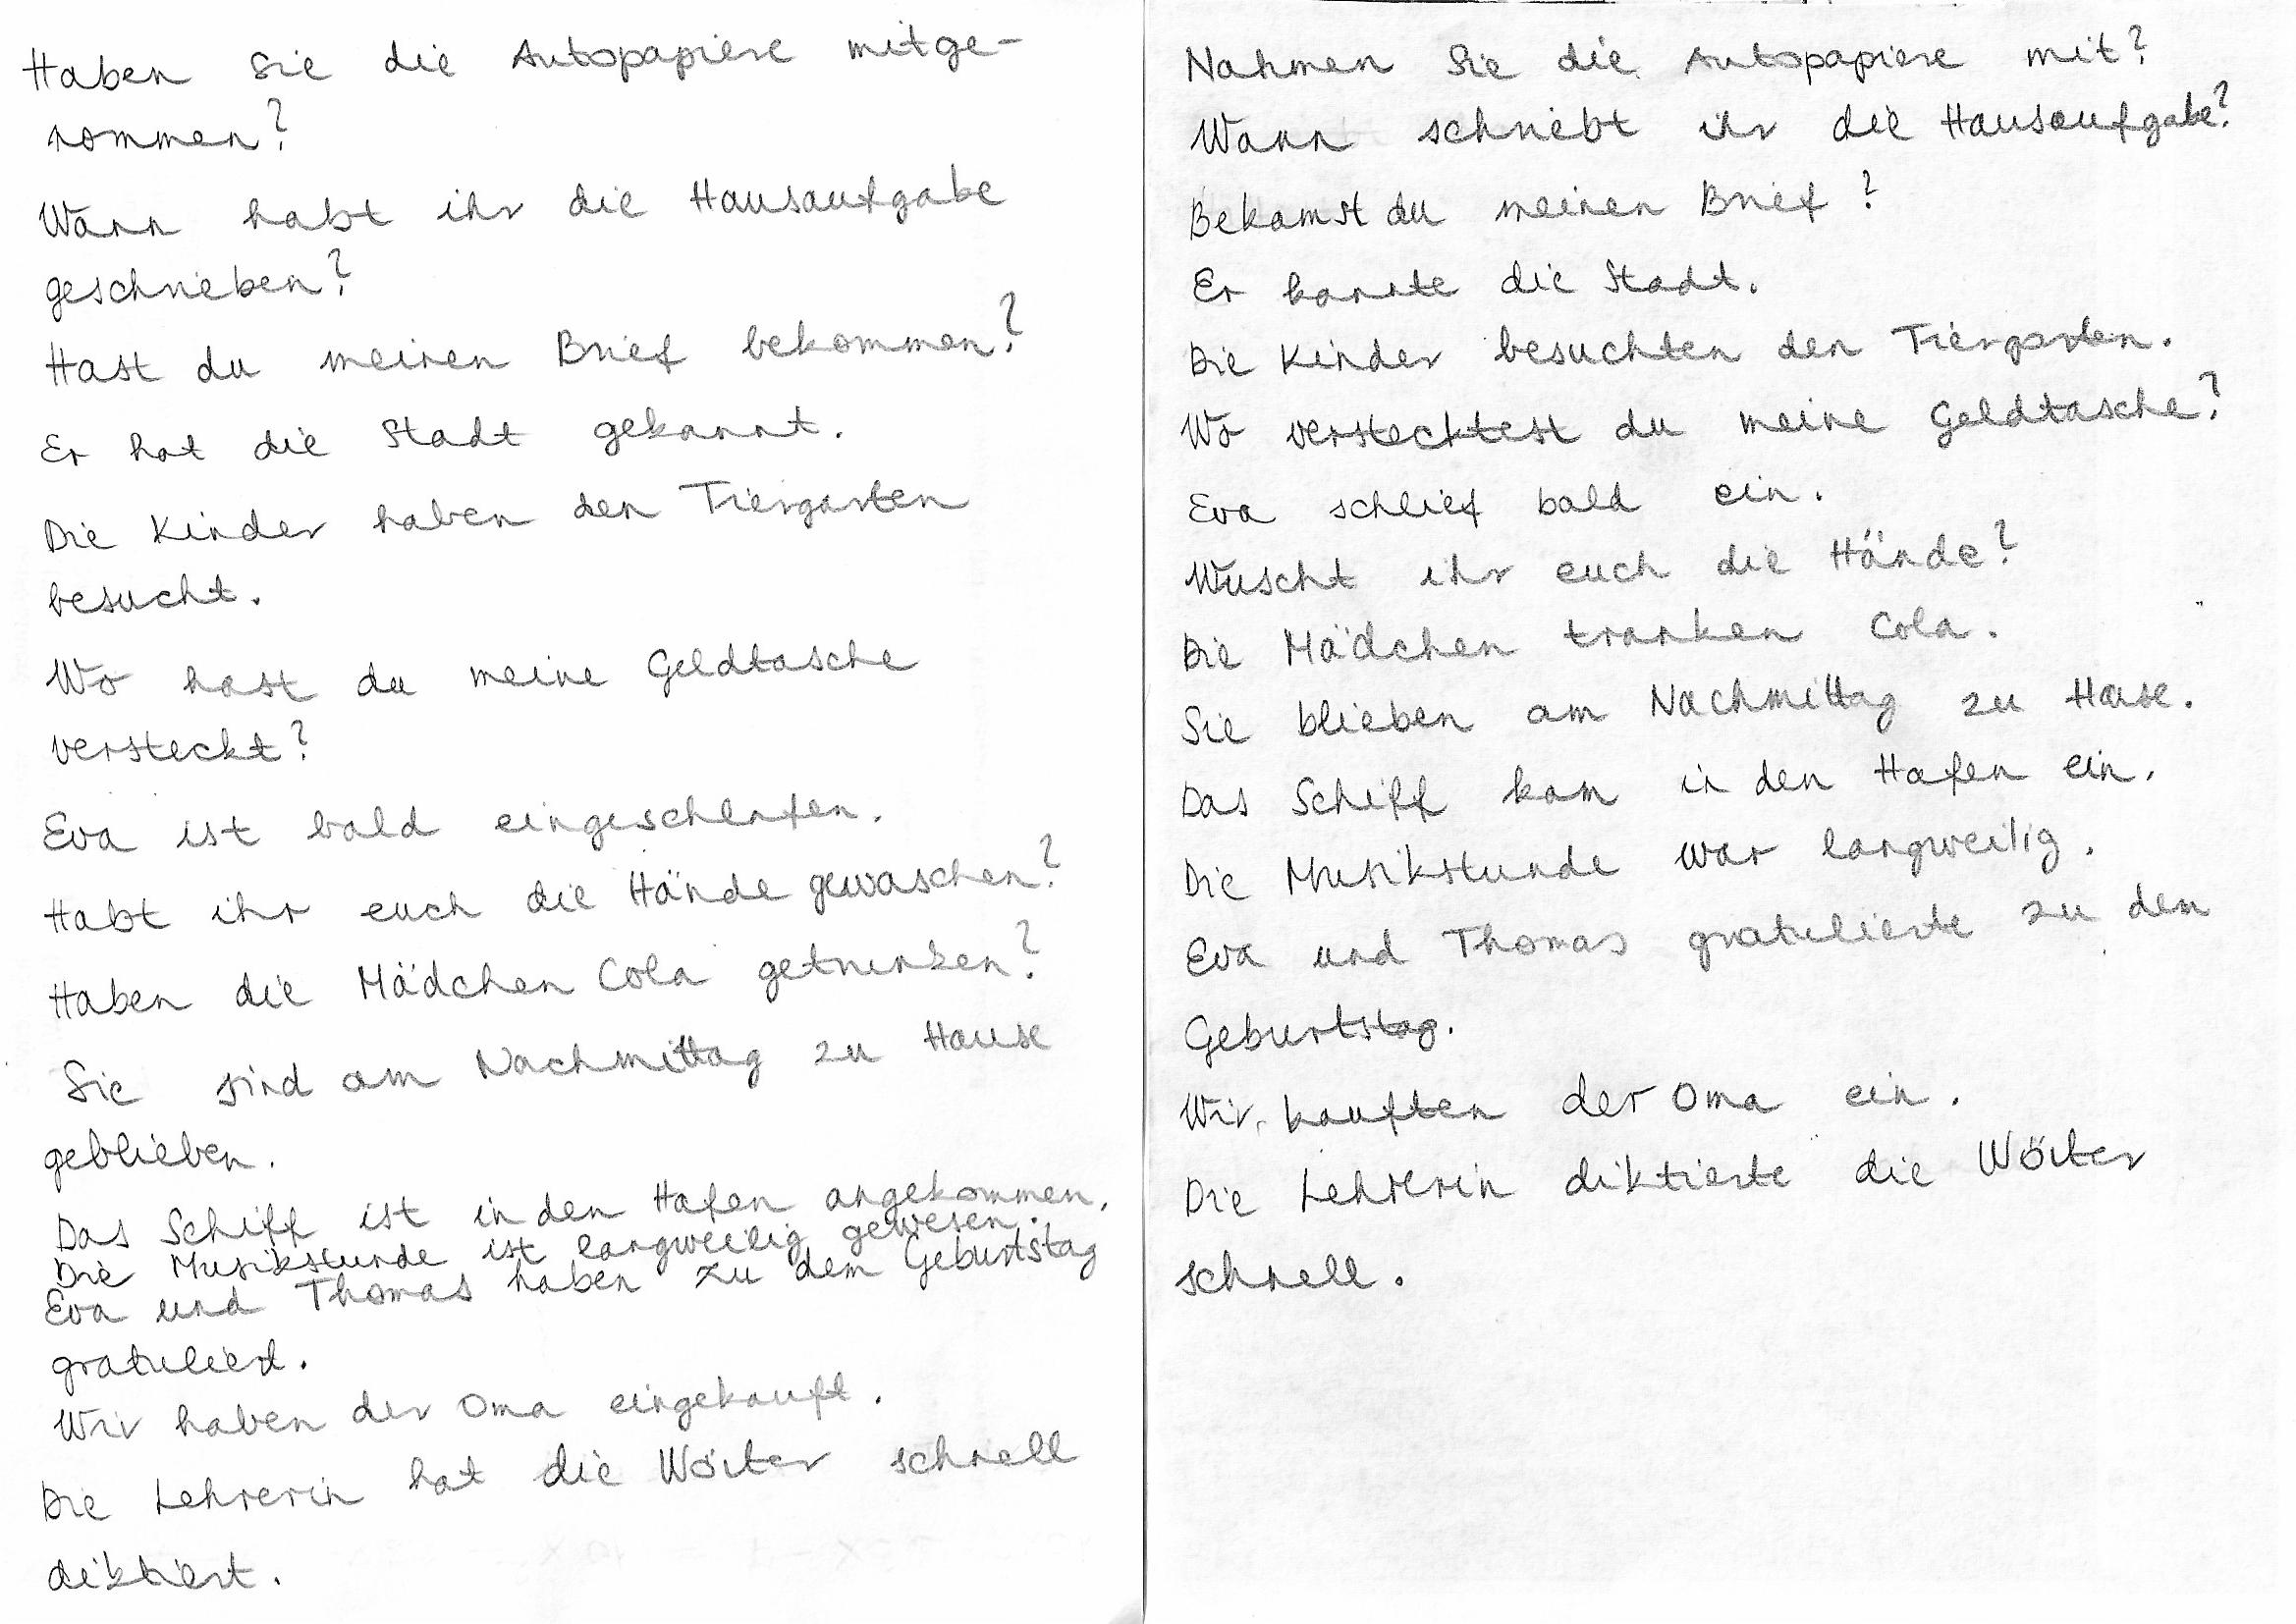 Haben Sie die Autopapiere mitge-
nommen?
Wann habt ihr die Hausaufgabe
geschrieben?
Hast du meinen Brief bekommen?
Er hat die Stadt gekannt.
Die Kinder haben den Tiergarten
besucht.
Wo hast du meine Geldtasche
versteckt?
Eva ist bald eingeschlafen.
Habt ihr euch die Hände gewaschen?
Haben die Mädchen Cola getrunken?
Sie sind am Nachmittag zu Hause
geblieben.
Das Schiff ist in den Hafen angekommen.
Die Musikstunde ist langweilig gewesen.
Eva und Thomas haben zu dem Geburtstag
gratuliert.
Wir haben der Oma eingekauft.
Die Lehrerin hat die Wörter schnell
diktiert.
Nahmen Sie die Autopapiere mit?
Wann schriebt ihr die Hausaufgabe?
Bekamst du meinen Brief?
Er kannte die Stadt.
Die Kinder besuchten den Tiergarten.
Wo verstecktest du meine Geldtasche?
Eva schlief bald ein.
Wuscht ihr euch die Hände?
Die Mädchen tranken Cola.
Sie blieben am Nachmittag zu Hause.
Das Schiff kam in den Hafen ein.
Die Musikstunde war langweilig.
Eva und Thomas gratulierte zu dem
Geburtstag.
Wir kauften der Oma ein.
Die Lehrerin diktierte die Wörter
schnell.